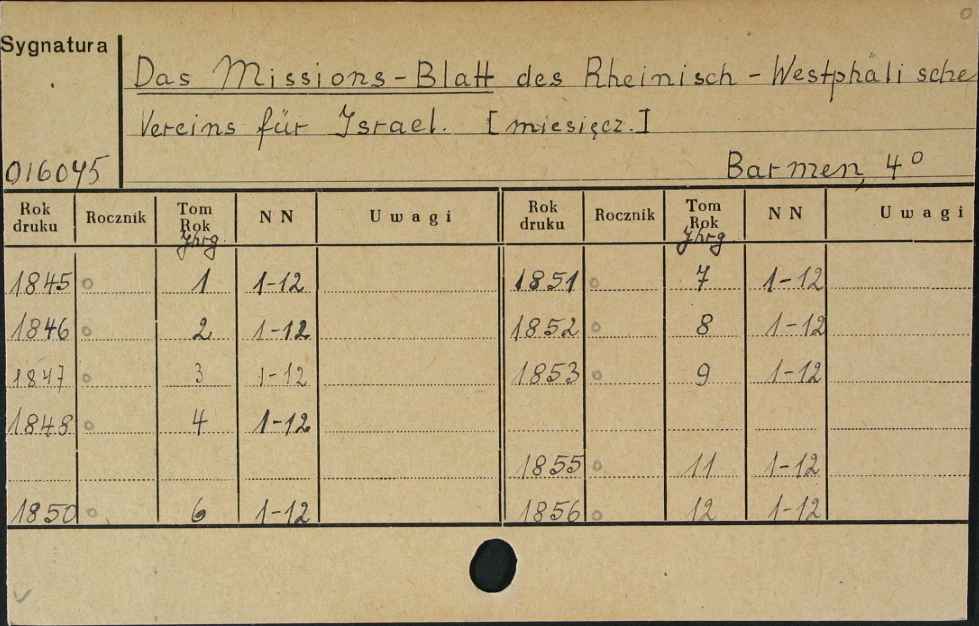 Sygnatura
Das Missions-Blatt des Rheinisch-Westphälische
Vereins für Israel. [miesięcz.]
016045
Barmen, 4°
Rok druku Rocznik Tom Rok Jhrg NN Uwagi Rok druku Rocznik Tom Rok Jhrg NN Uwagi
1845 1 1-12 1851 7 1-12
1846 2 1-12 1852 8 1-12
1847 3 1-12 1853 9 1-12
1848 4 1-12
1855 11 1-12
1850 6 1-12 1856 12 1-12